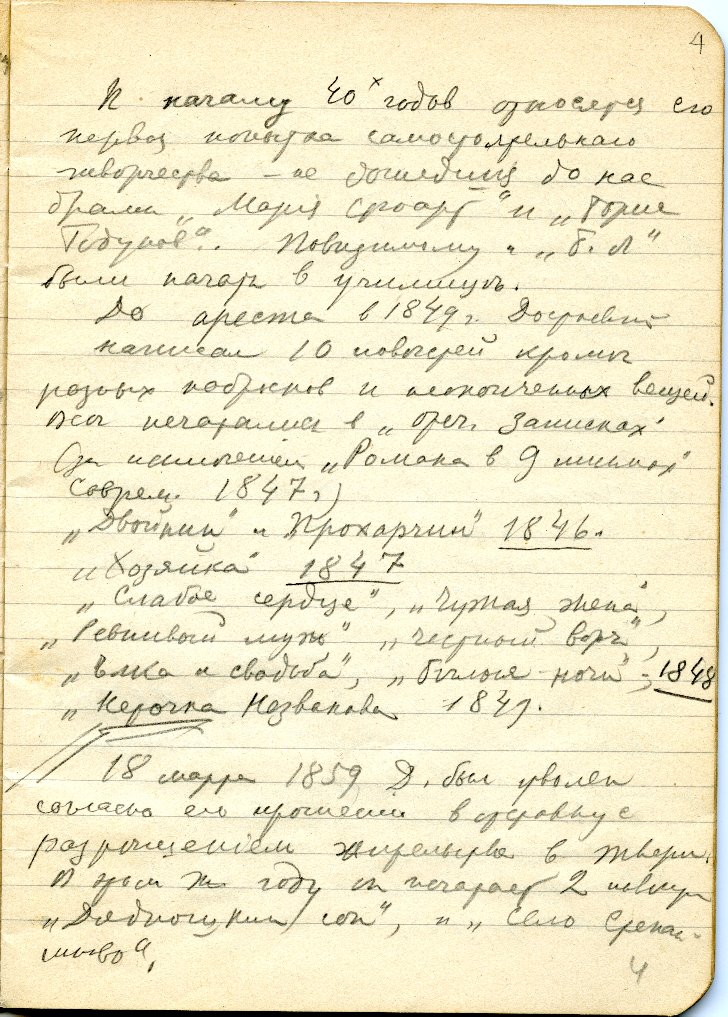 4
К началу 40х годов относятся его
первая попытка самостоятельнаго
творчества – не дошедшия до нас
драмы „Марія Стюарт" и „Борис
Годунов". Повидимому и „Б. Л"
были начаты в училище.
До ареста в 1849 г. Достоевский
написал 10 повестей кроме
разных набросков и неоконченных вещей.
Все печатались в „Отеч. Записках"
(за исключением „Романа в 9 письмах"
Соврем. 1847 г.)
„Двойник" и „Прохарчин" 1846.
„Хозяйка" 1847
„Слабое сердце", „Чужая жена",
„Ревнивый муж", „Честный воръ",
„Ёлка и свадьба", „Белыя ночи", 1848
„Неточка Незванова 1849.
18 марта 1859 Д. был уволен
согласно его прошению в отставку с
разрешением жительства в Твери.
В этом же году он печатает 2 повести
„Дядюшкин сон", и „Село Степан-
чиково",
4